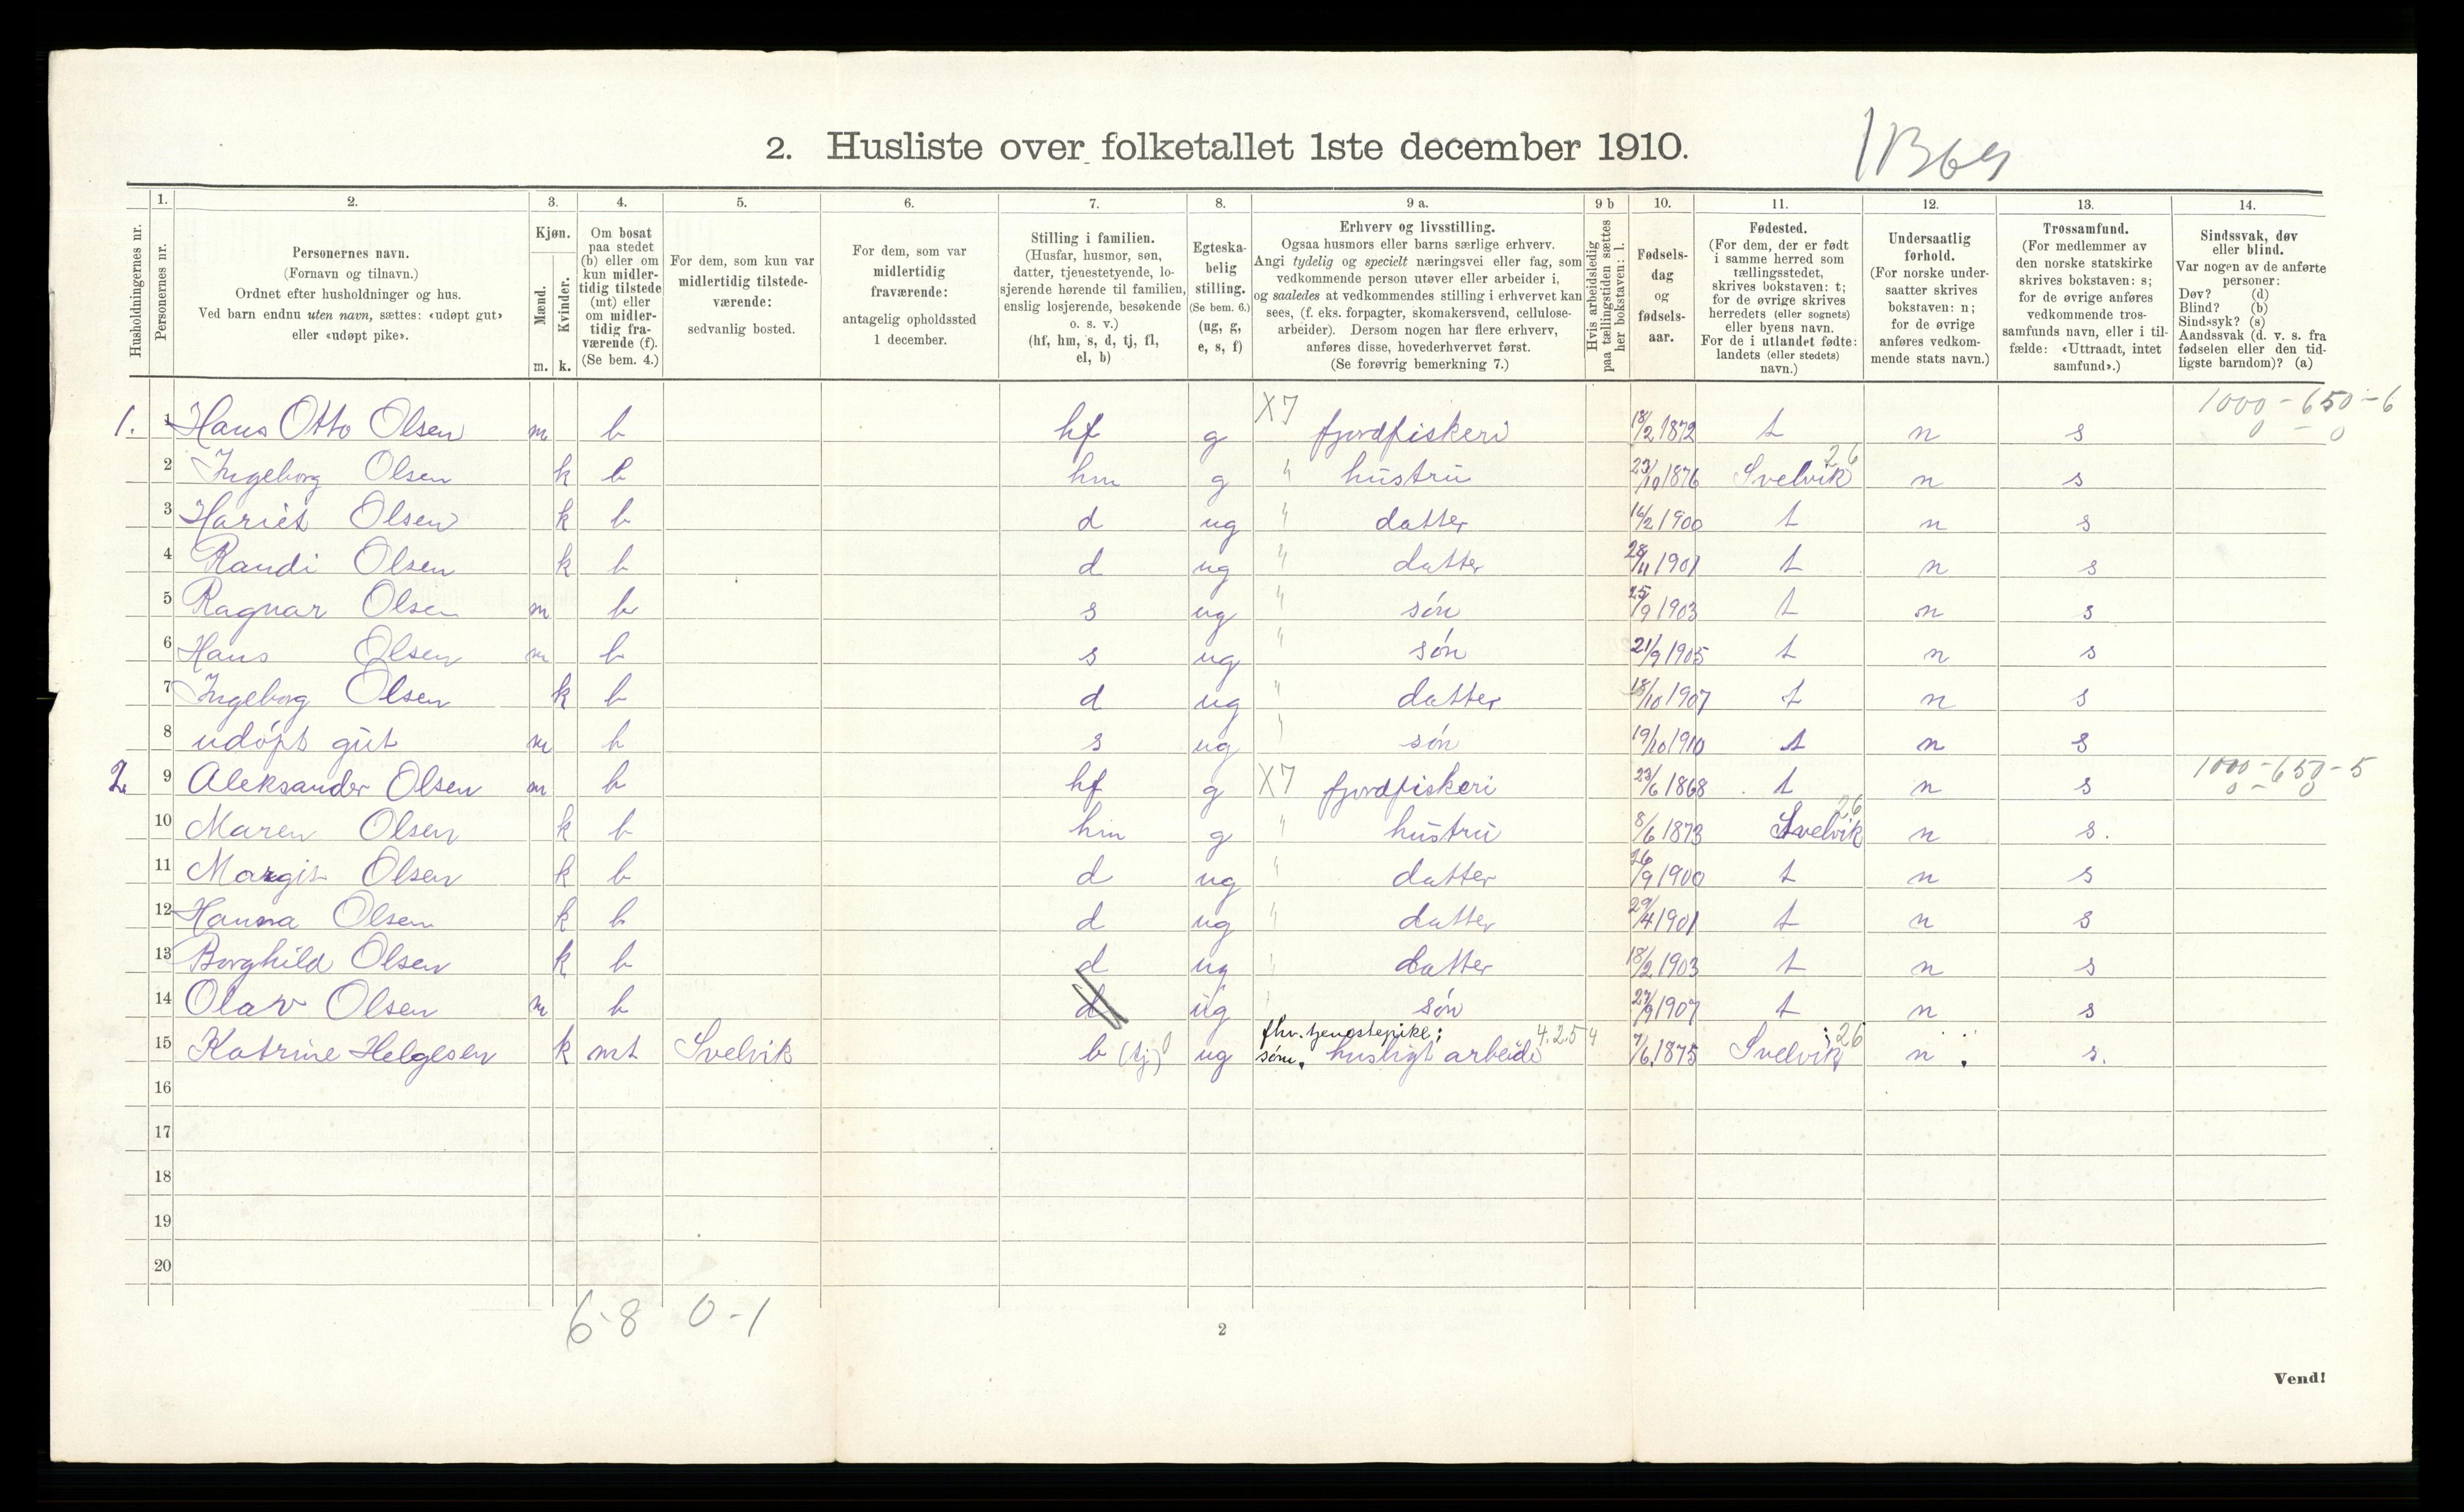 2. Husliste over folketallet 1ste december 1910.
1. 2. 3. 4. 5. 6. 7. 8. 9 a. 9 b 10. 11. 12. 13. 14.
Husholdningernes nr.
Personernes nr.
Personernes navn.
(Fornavn og tilnavn.)
Ordnet efter husholdninger og hus.
Ved barn endnu uten navn, sættes: «udøpt gut»
eller «udøpt pike».
Kjøn.
Mænd.
Kvinder.
m. k.
Om bosat
paa stedet
(b) eller om
kun midler-
tidig tilstede
(mt) eller
om midler-
tidig fra-
værende (f).
(Se bem. 4.)
For dem, som kun var
midlertidig tilstede-
værende:
sedvanlig bosted.
For dem, som var
midlertidig
fraværende:
antagelig opholdssted
1 december.
Stilling i familien.
(Husfar, husmor, søn,
datter, tjenestetyende, lo-
sjerende hørende til familien,
enslig losjerende, besøkende
o. s. v.)
(hf, hm, s, d, tj, fl,
el, b)
Egteska-
belig
stilling.
(Se bem. 6.)
(ug, g,
e, s, f)
Erhverv og livsstilling.
Ogsaa husmors eller barns særlige erhverv.
Angi tydelig og specielt næringsvei eller fag, som
vedkommende person utøver eller arbeider i,
og saaledes at vedkommendes stilling i erhvervet kan
sees, (f. eks. forpagter, skomakersvend, cellulose-
arbeider). Dersom nogen har flere erhverv,
anføres disse, hovederhvervet først.
(Se forøvrig bemerkning 7.)
Hvis arbeidsledig
paa tællingstiden sættes
her bokstaven: l.
Fødsels-
dag
og
fødsels-
aar.
Fødested.
(For dem, der er født
i samme herred som
tællingsstedet,
skrives bokstaven: t;
for de øvrige skrives
herredets (eller sognets)
eller byens navn.
For de i utlandet fødte:
landets (eller stedets)
navn.)
Undersaatlig
forhold.
(For norske under-
saatter skrives
bokstaven: n;
for de øvrige
anføres vedkom-
mende stats navn.)
Trossamfund.
(For medlemmer av
den norske statskirke
skrives bokstaven: s;
for de øvrige anføres
vedkommende tros-
samfunds navn, eller i til-
fælde: «Uttraadt, intet
samfund».)
Sindssvak, døv
eller blind.
Var nogen av de anførte
personer:
Døv? (d)
Blind? (b)
Sindssyk? (s)
Aandssvak (d. v. s. fra
fødselen eller den tid-
ligste barndom)? (a)
1000 - 650 - 6
0 - 0
1. 1 Hans Otto Olsen m b hf g X7 fjordfiskeri 18/2 1872 t n s
2 Ingeborg Olsen k b hm g " hustru 23/10 1876 Svelvik 26 n s
3 Hariet Olsen k b d ug " datter 16/2 1900 t n s
4 Randi Olsen k b d ug " datter 28/11 1901 t n s
5 Ragnar Olsen m b s ug " søn 25/9 1903 t n s
6 Hans Olsen m b s ug " søn 21/9 1905 t n s
7 Ingeborg Olsen k b d ug " datter 18/10 1907 t n s
8 udøpt gut m b s ug " søn 19/10 1910 t n s
1000 - 650 - 5
0 - 0
2. 9 Aleksander Olsen m b hf g X7 fjordfiskeri 23/6 1868 t n s
10 Maren Olsen k b hm g " hustru 8/6 1873 Svelvik 26 n s.
11 Margit Olsen k b d ug " datter 26/9 1900 t n s
12 Hanna Olsen k b d ug " datter 29/4 1901 t n s
13 Borghild Olsen k b d ug " datter 18/2 1903 t n s
14 Olav Olsen m b d ug " søn 27/9 1907 t n s
fhv. tjenestepike; 4.2.5 4
15 Katrine Helgesen k mt Svelvik b (tj) 0 ug søm. husligt arbeide 7/6 1875 Svelvik 26 n s.
16
17
18
19
20
6-8 0-1
2
Vend!